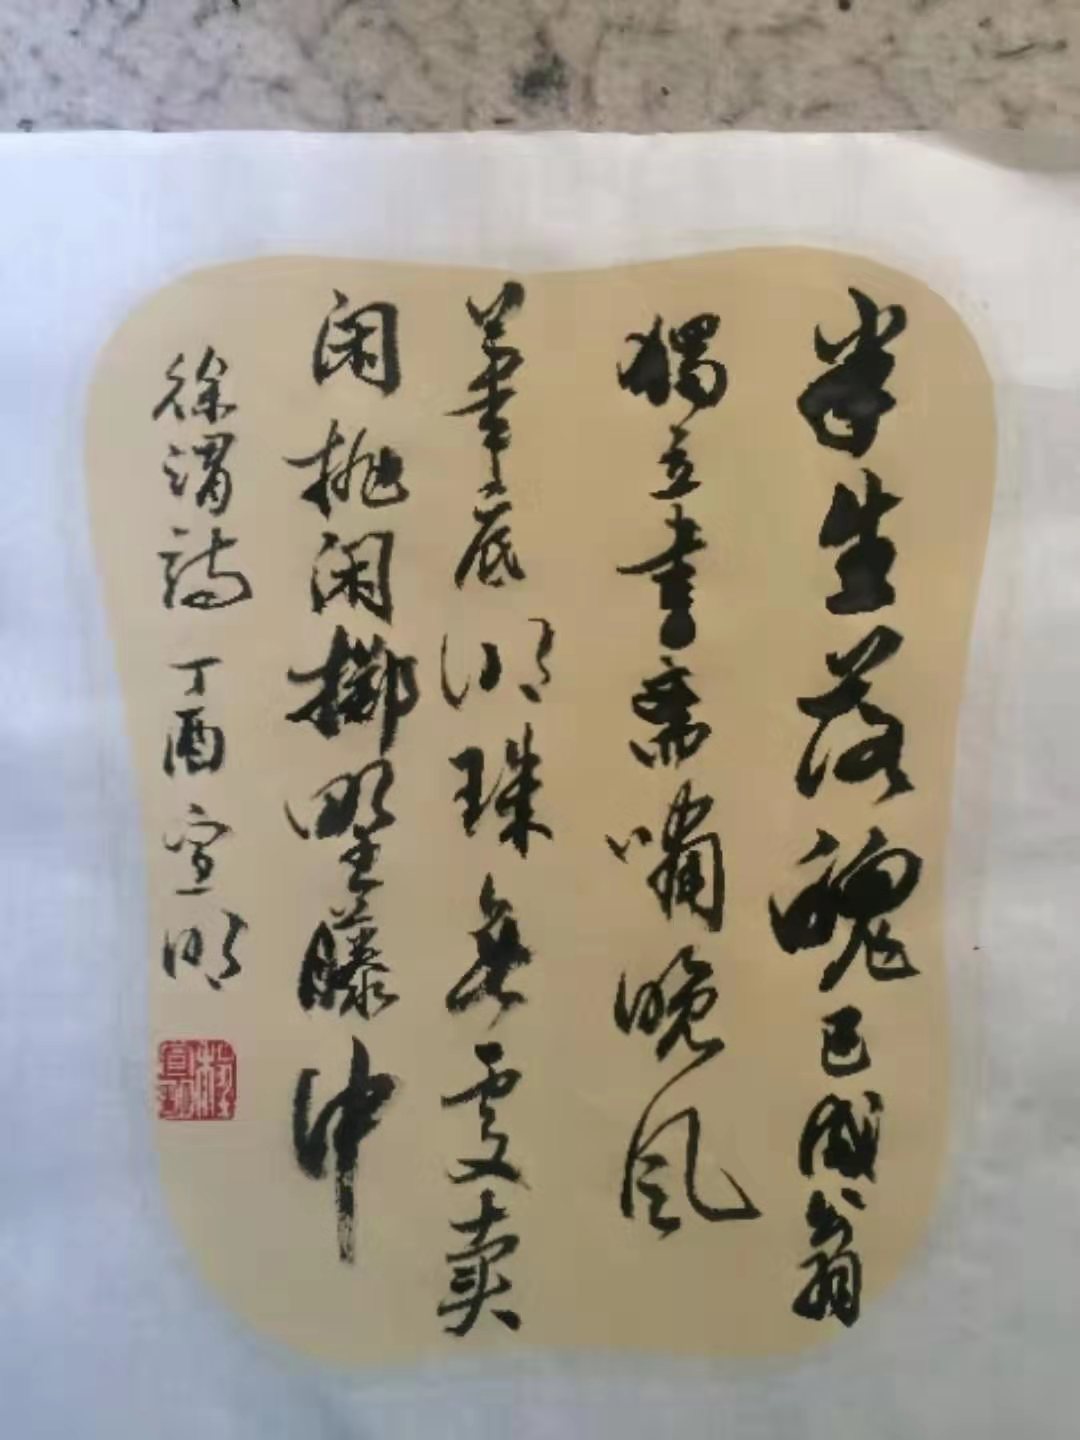 半生落魄已成翁
獨立書齋嘯晚风
筆底明珠無處賣
闲抛闲擲野藤中
徐渭詩 丁酉 宣明